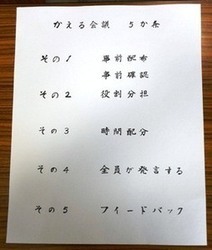 かえる会議 5か条
その1 事前配布
事前確認
その2 役割分担
その3 時間配分
その4 全員が発言する
その5 フィードバック